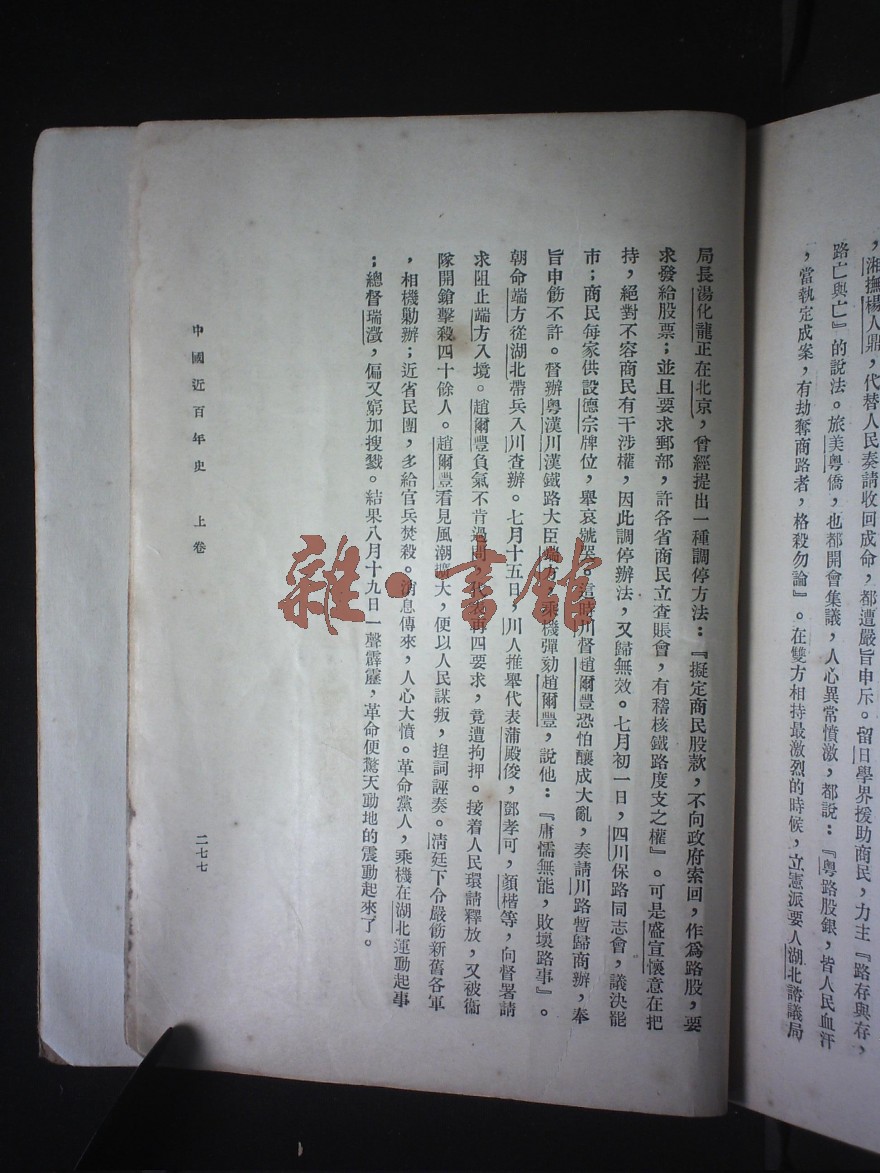 ，湘撫楊人鼎，代替人民奏請收回成命，都遭嚴旨申斥。留日學界援助商民，力主『路存與存，
路亡與亡』的說法。旅美粵僑，也都開會集議，人心異常憤激，都說：『粵路股銀，皆人民血汗
，當執定成案，有劫奪商路者，格殺勿論』。在雙方相持最激烈的時候，立憲派要人湖北諮議局
局長湯化龍正在北京，曾經提出一種調停方法：『擬定商民股款，不向政府索回，作爲路股，要
求發給股票；並且要求郵部，許各省商民立查賬會，有稽核鐵路度支之權』。可是盛宣懷意在把
持，絕對不容商民有干涉權，因此調停辦法，又歸無效。七月初一日，四川保路同志會，議決罷
市；商民每家供設德宗牌位，舉哀號哭。這時川督趙爾豐恐怕釀成大亂，奏請川路暫歸商辦，奉
旨申飭不許。督辦粵漢川漢鐵路大臣端方，乘機彈劾趙爾豐，說他：『庸懦無能，敗壞路事』。
朝命端方從湖北帶兵入川查辦。七月十五日，川人推舉代表蒲殿俊，鄧孝可，顏楷等，向督署請
求阻止端方入境。趙爾豐負氣不肯過問，代表再四要求，竟遭拘押。接着人民環請釋放，又被衞
隊開鎗擊殺四十餘人。趙爾豐看見風潮擴大，便以人民謀叛，揑詞誣奏。淸廷下令嚴飭新舊各軍
，相機勦辦；近省民團，多給官兵焚殺。消息傳來，人心大憤。革命黨人，乘機在湖北運動起事
；總督瑞澂，偏又窮加搜戮。結果八月十九日一聲霹靂，革命便驚天動地的震動起來了。
中國近百年史 上卷
二七七
雜·書館